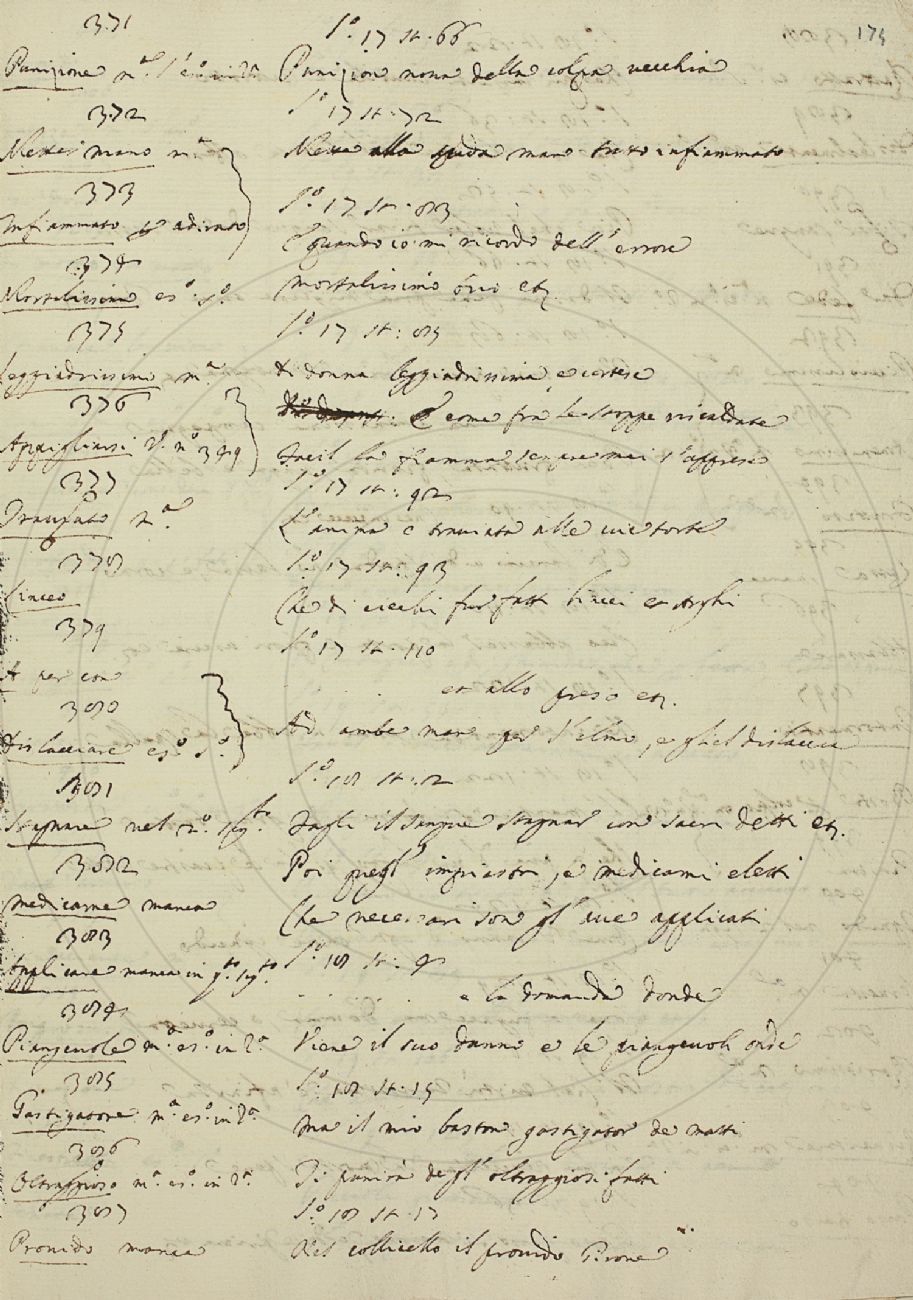 174
371
Punizione m.ª l'es.º in P.ª
C.º 17 st. 66
Punizion nona della colpa vecchia
372
Metter mano m.ª
C.º 17 st. 72
Mette alla spada mano tutto infiammato
373
Infiammato p adirato
C.º 17 st. 83
E quando io mi ricordo dell'errore
374
Mortalissimo es.º C.º
mortalissimo odio etc.
375
Leggiadrissimo m.ª
C.º 17 st. 85
di donna leggiadrissima e cortese
376
Appigliarsi V. n.º 349
E come fra le stoppe riscaldate
Facil la fiamma sempre mai s'apprese
377
m.ª
C.º 17 st. 92
L'anima e traviata alle vie torte
378
Linceo
C.º 17 st. 93
Che di ciechi fur fatti lincei et Arghi
379
A per con
C.º 17 st. 110
et allo preso etc.
380
Dislacciare es.º C.º
Ad ambe man per l'elmo, e gliel dislaccia
381
Stagnare nel n.º sig.to
C.º 18 st. 2
Fagli il sangue stagnar con sacri detti etc.
382
Medicame manca
Poi quegl' impiastri, e medicami eletti
Che necessari son gl' ave applicati
383
Applicare manca in q.to sig.to
C.º 18 st. 4
e la domanda donde
384
Piangevole m.ª es.º in P.ª
Viene il suo danno e le piangevoli onde
385
Gastigatore m.ª es.º in P.ª
C.º 18 st. 15
Ma il mio baston gastigator de matti
386
Oltraggioso m.ª es.º in P.ª
Ti punirà degl' oltraggiosi fatti
387
Provido manca
C.º 18 st. 17
Nel collicello il provido Girone